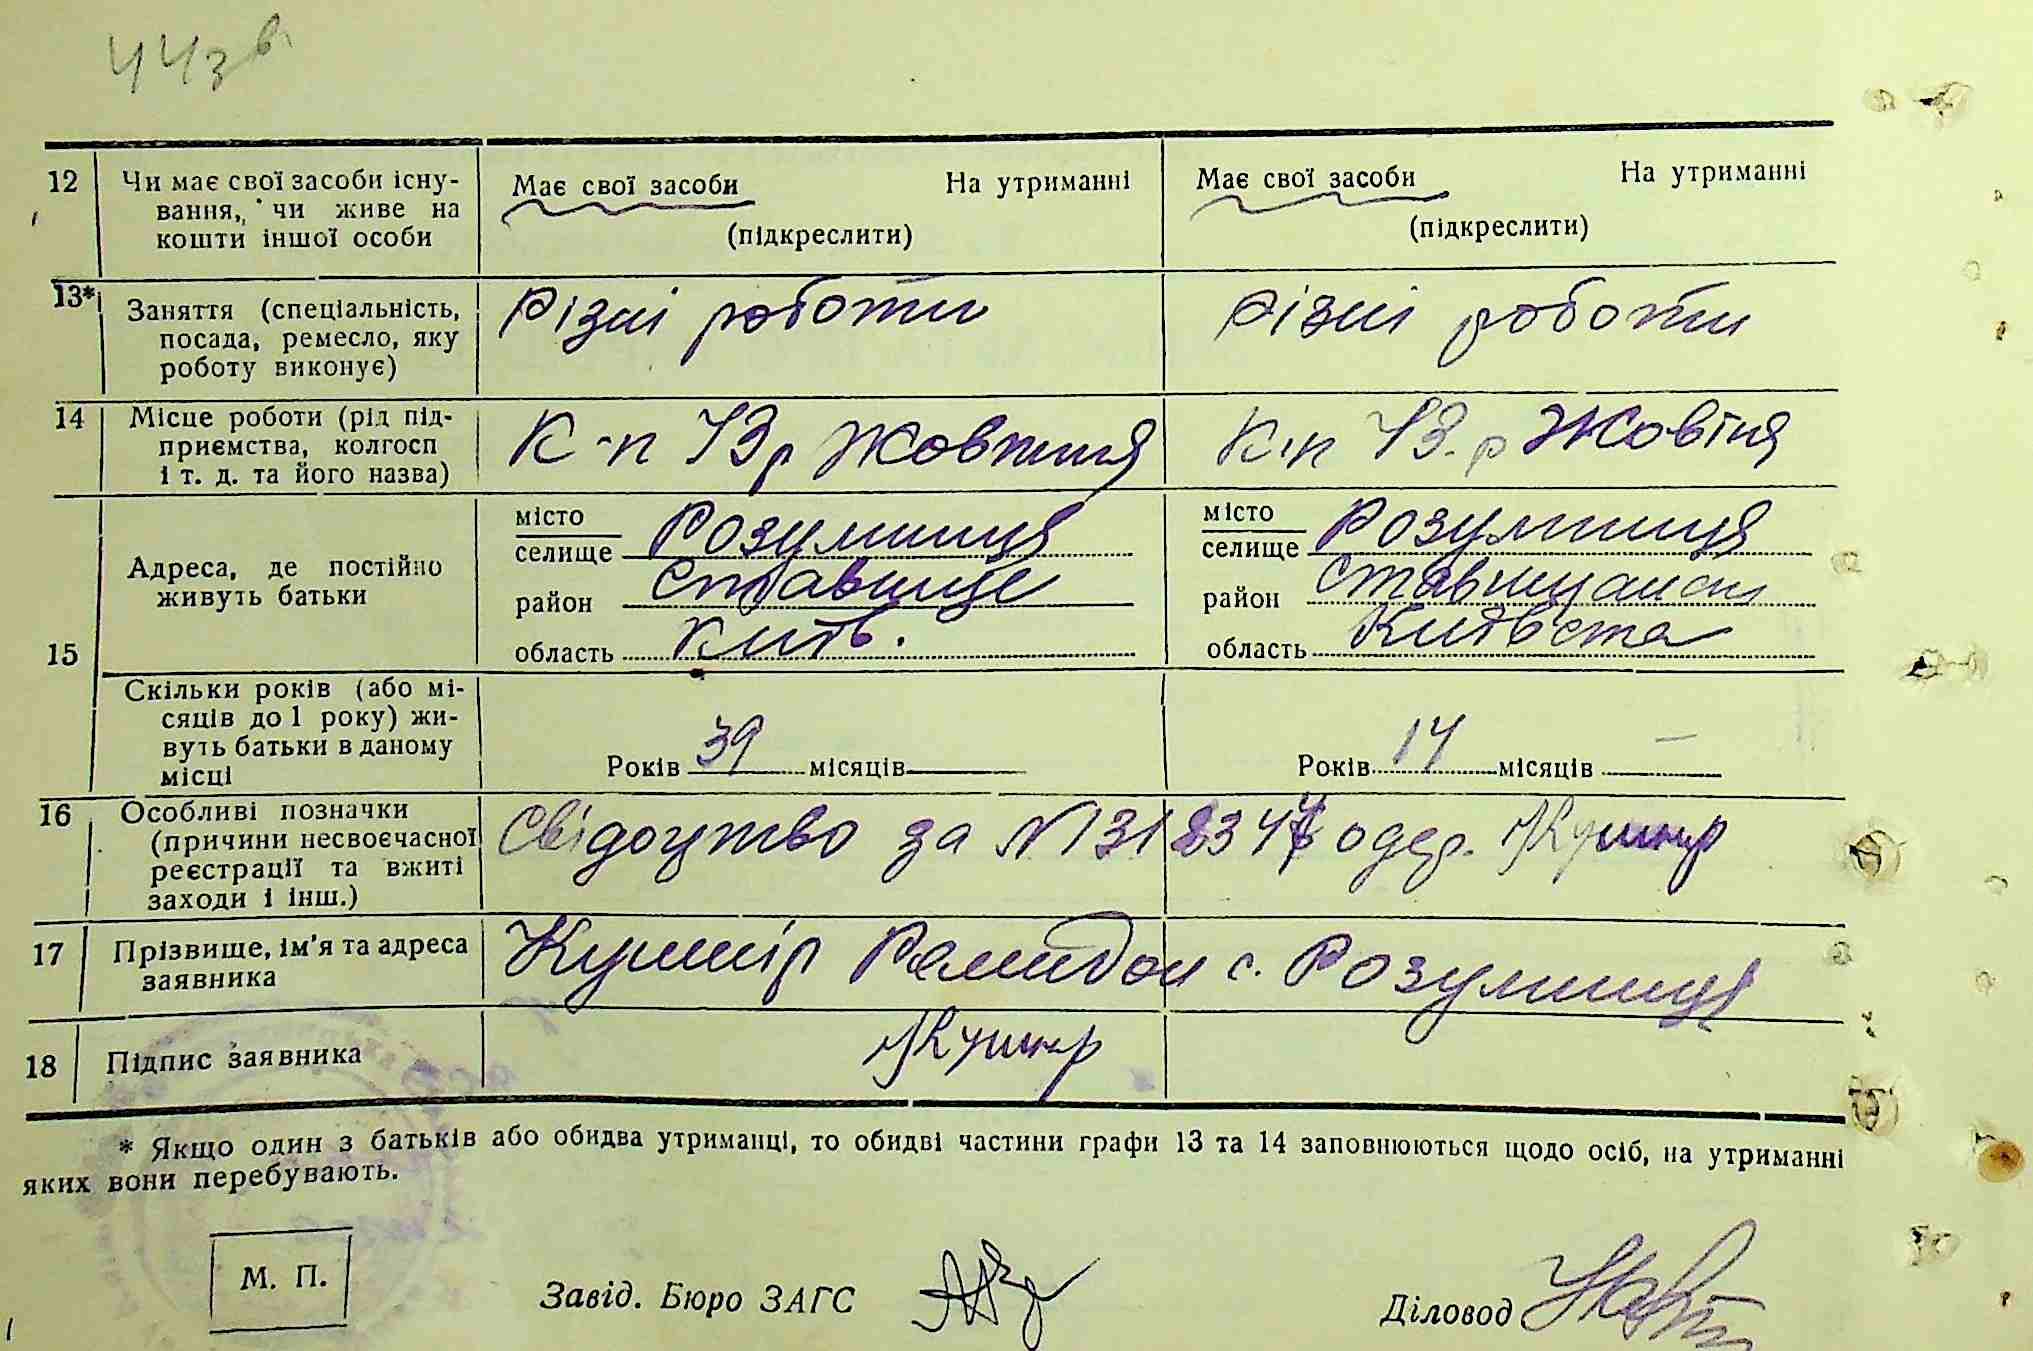 44 зв.
12 Чи має свої засоби існу-
вання, чи живе на
кошти іншої особи
Має свої засоби На утриманні
(підкреслити)
Має свої засоби На утриманні
(підкреслити)
13* Заняття (спеціальність,
посада, ремесло, яку
роботу виконує)
Різні роботи
Різні роботи
14 Місце роботи (рід під-
приємства, колгосп
і т. д. та його назва)
К-п 13 р Жовтня
К-п 13. р Жовтня
15
Адреса, де постійно
живуть батьки
місто
селище Розумниця
район Ставище
область Київ.
місто
селище Розумниця
район Ставищанськ
область Київська
Скільки років (або мі-
сяців до 1 року) жи-
вуть батьки в даному
місці
Років 39 місяців
Років 14 місяців —
16 Особливі позначки
(причини несвоєчасної
реєстрації та вжиті
заходи і інш.)
Свідоцтво за № одер. Кушнір
17 Прізвище, ім'я та адреса
заявника
Кушнір с. Розумниця
18 Підпис заявника
Кушнір
* Якщо один з батьків або обидва утриманці, то обидві частини графи 13 та 14 заповнюються щодо осіб, на утриманні
яких вони перебувають.
М. П.
Завід. Бюро ЗАГС
Діловод